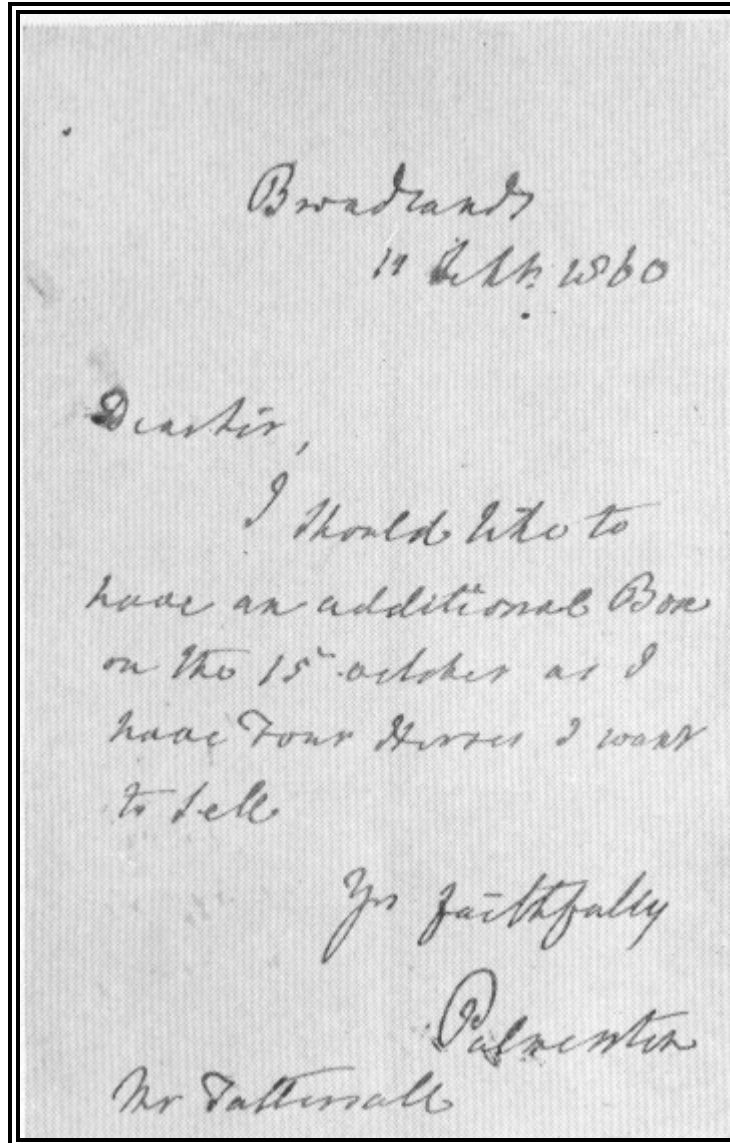 Broadlands
Sept. 1860
Dear Sir,
I should like to
have an additional Box
on the 15 october as I
have Four Horses I want
to sell
Yrs faithfully
Palmerston
Mr Tattersall